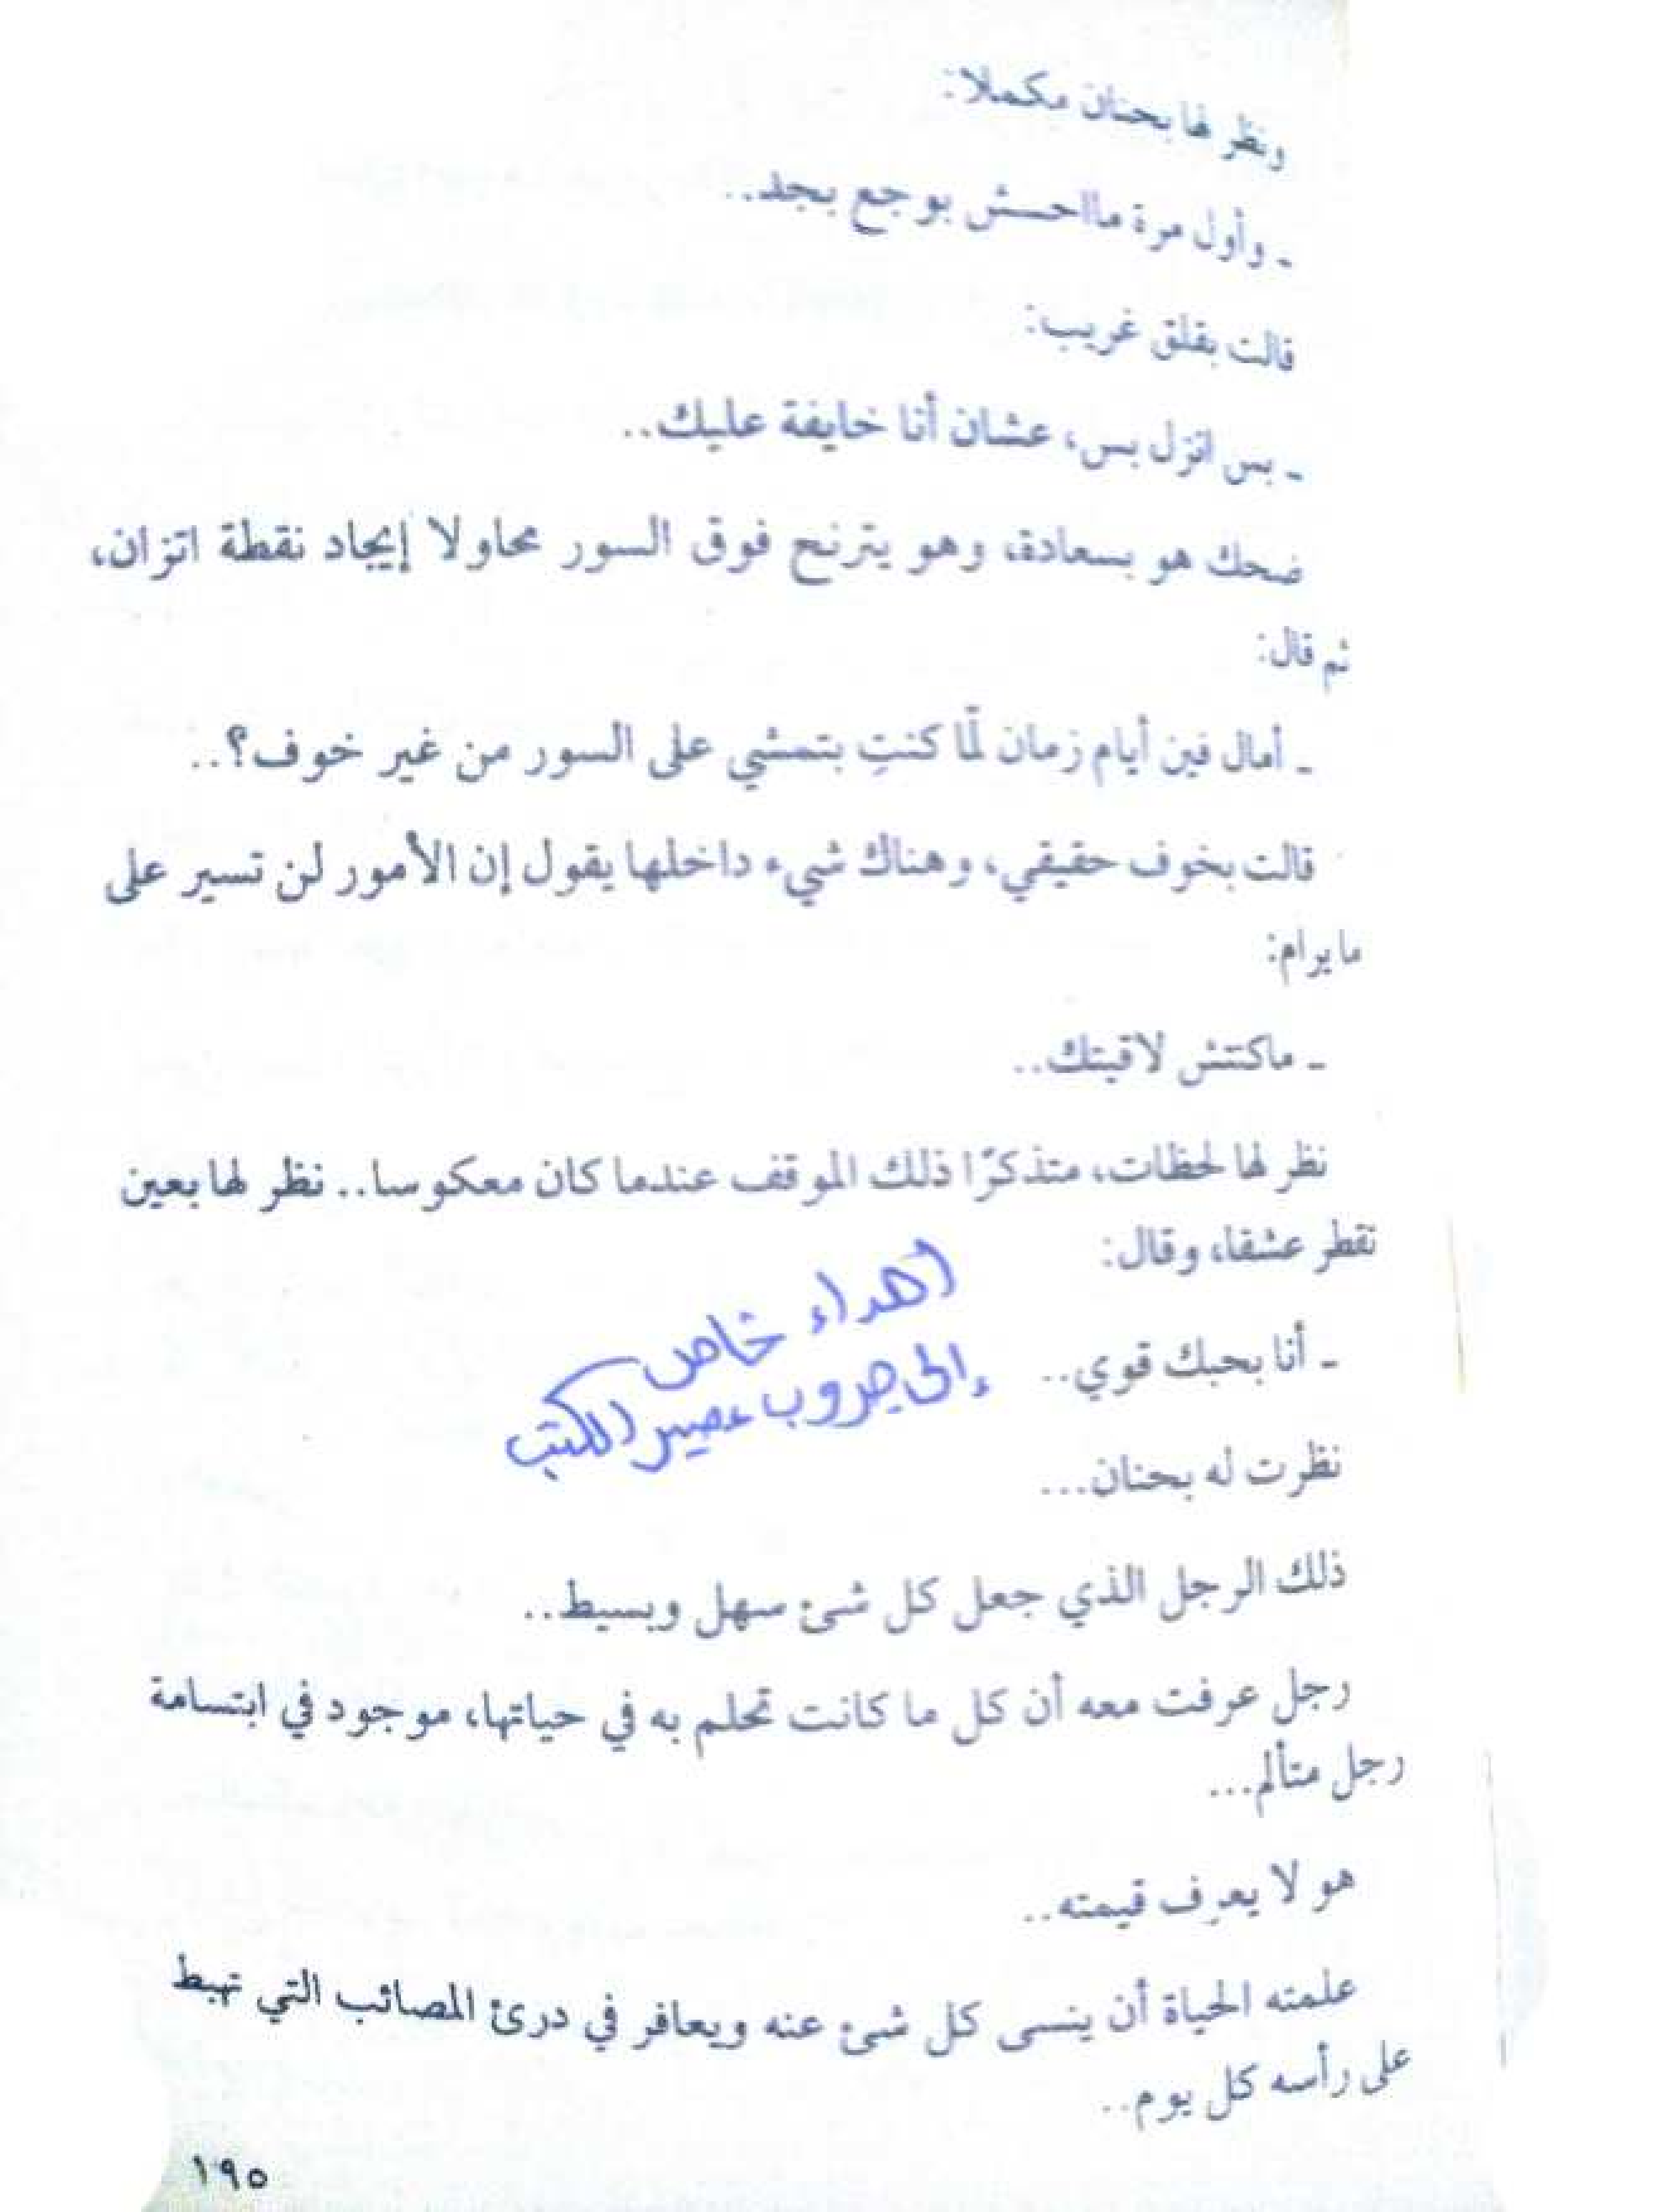 ونظر لها بحنان مكملا:
ـ وأول مرة مااحسش بوجع بجد..
قالت بقلق غريب:
ـ بس انزل بس، عشان أنا خايفة عليك..
ضحك هو بسعادة، وهو يترنح فوق السور محاولا إيجاد نقطة اتزان،
ثم قال:
ـ أمال فين أيام زمان لمّا كنتِ بتمشي على السور من غير خوف؟..
قالت بخوف حقيقي، وهناك شيء داخلها يقول إن الأمور لن تسير على
مايرام:
ـ ماكنتش لاقيتك..
نظر لها لحظات، متذكرًا ذلك الموقف عندما كان معكوسا.. نظر لها بعين
تقطر عشقا، وقال:
اهداء خاص
إلى جروب عصير الكتب
ـ أنا بحبك قوي..
نظرت له بحنان...
ذلك الرجل الذي جعل كل شئ سهل وبسيط..
رجل عرفت معه أن كل ما كانت تحلم به في حياتها، موجود في ابتسامة
رجل متألم...
هو لا يعرف قيمته..
علمته الحياة أن ينسى كل شئ عنه ويعافر في درئ المصائب التي تهبط
على رأسه كل يوم..
١٩٥